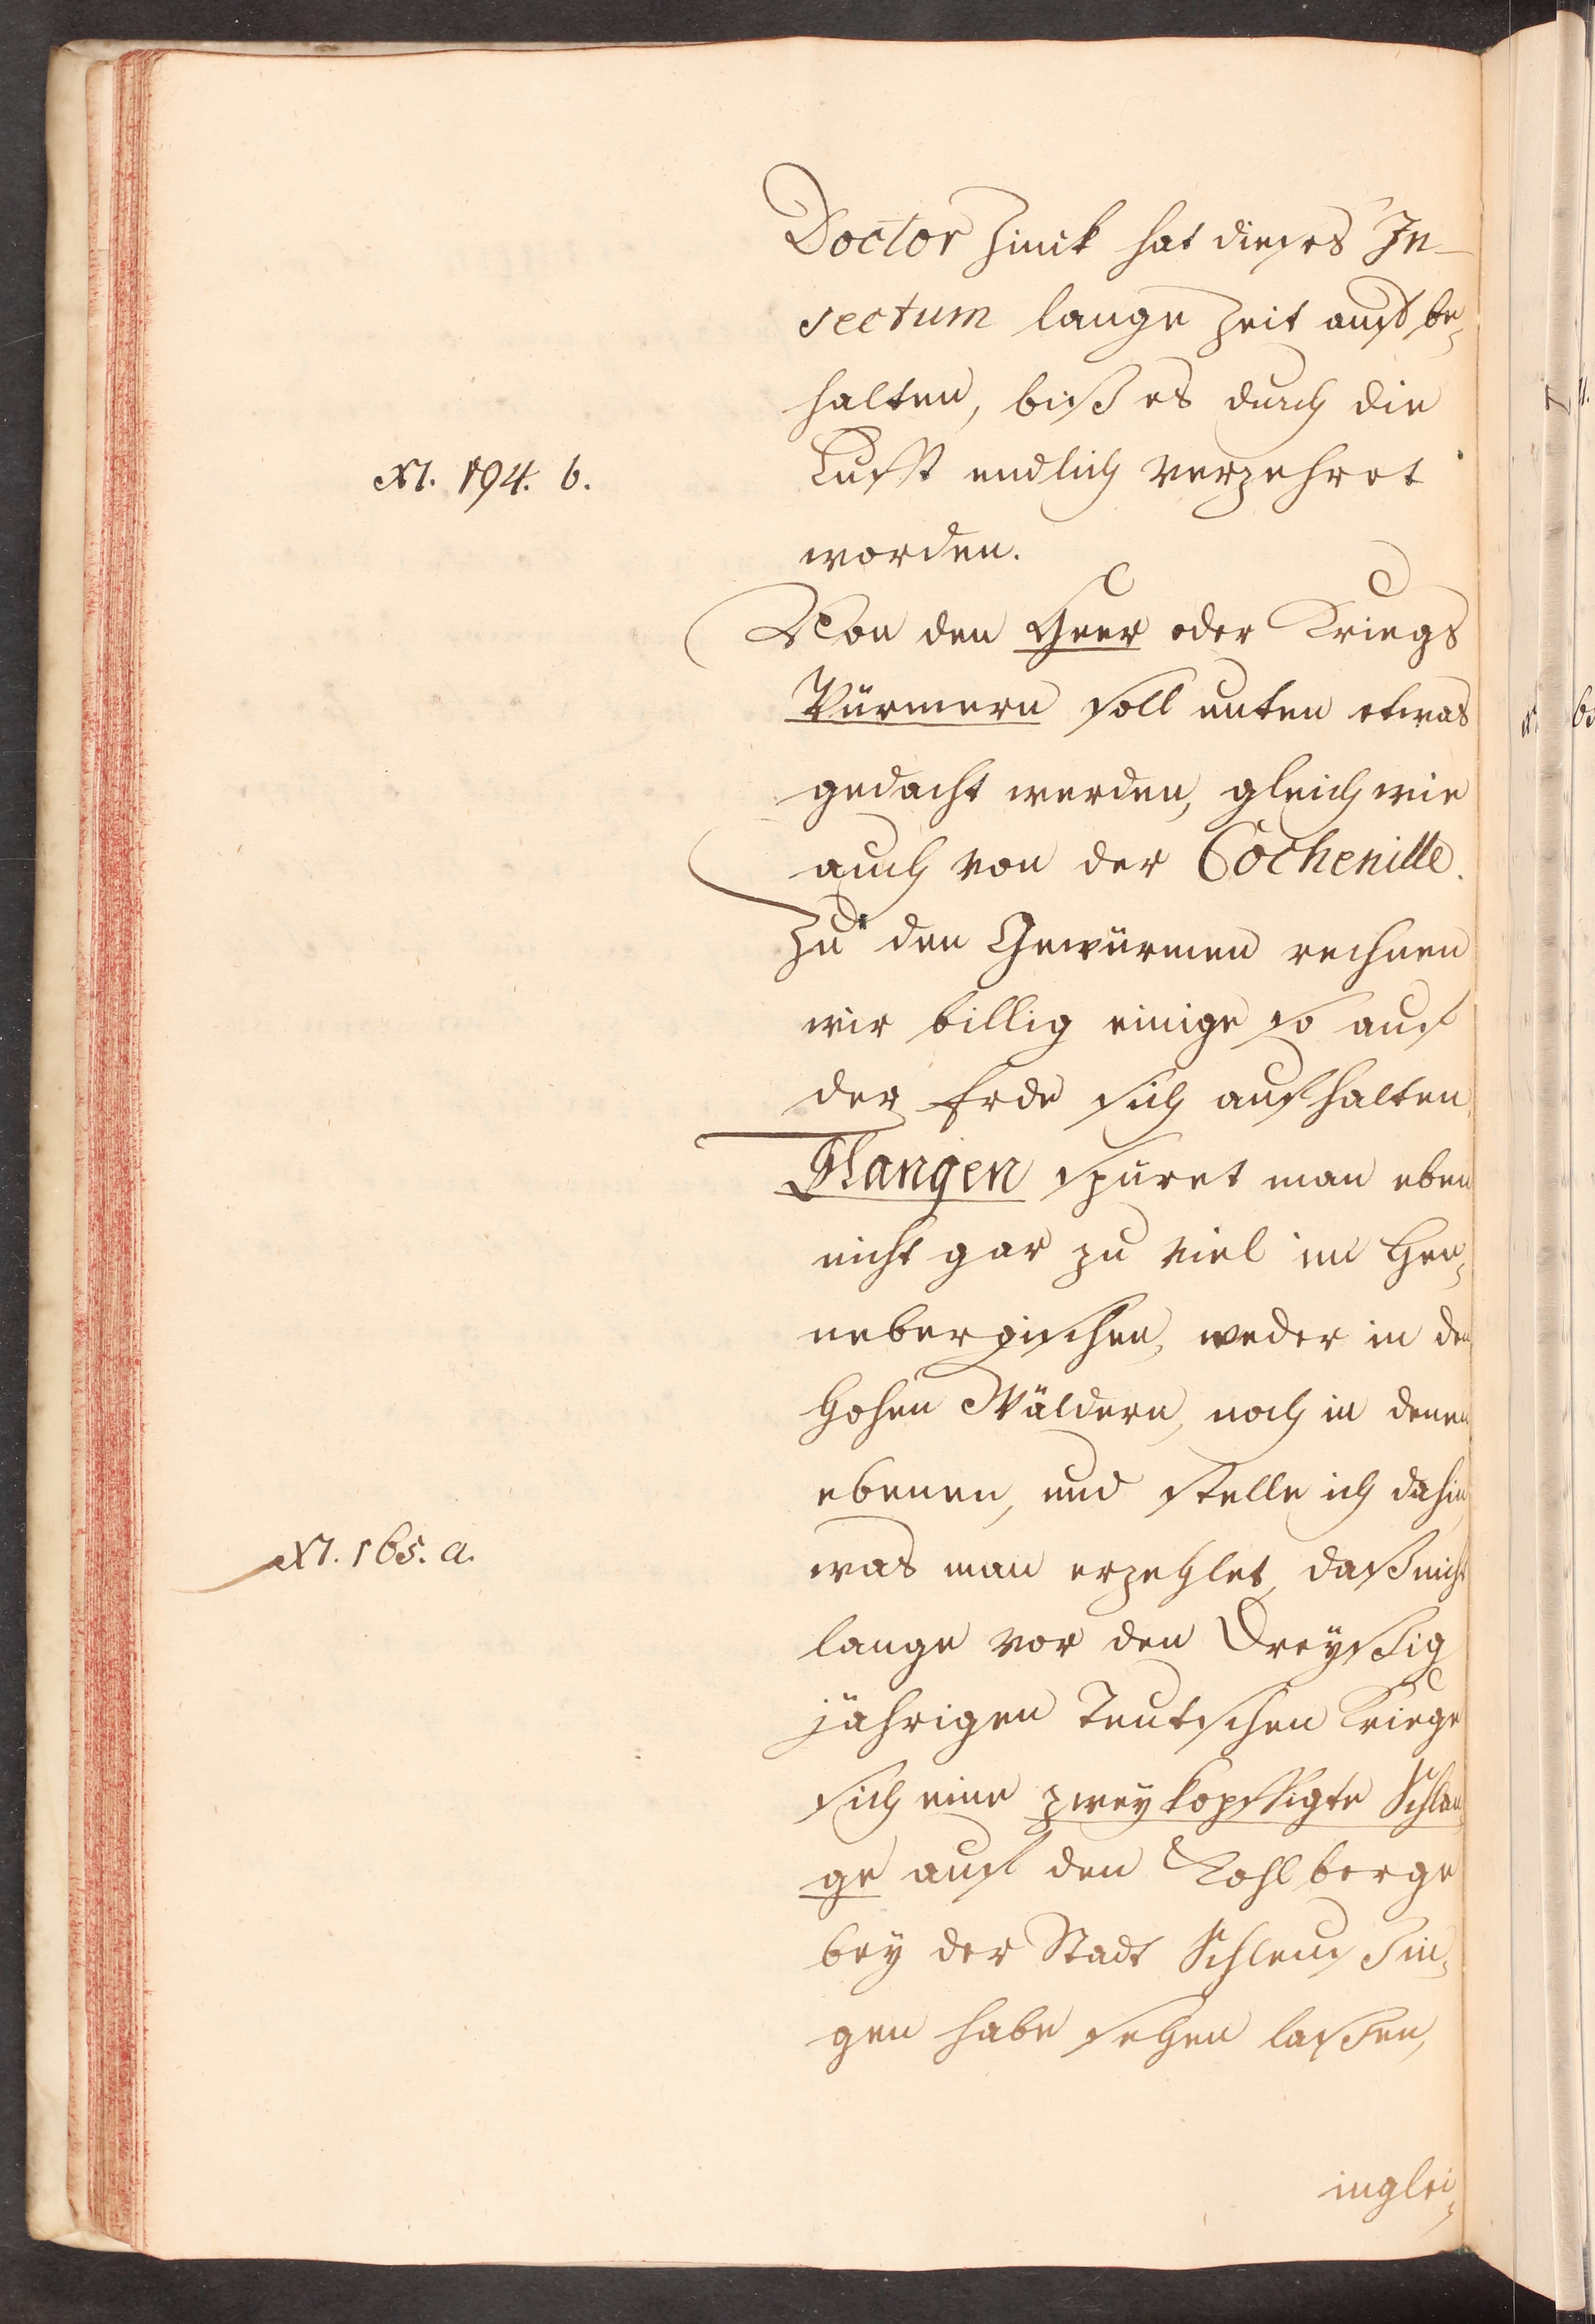 Doctor Zinck hat dieses In-
sectum lange Zeit auf be-
halten, biß es durch die
Lufft endlich verzehret
worden.
XI. 194. b.
Von den Heer oder Kriegs
Würmern soll unten etwas
gedacht werden, gleich wie
auch von der Cochenille.
Zu den Gewürmen rechnen
wir billig einige so auf
der Erde sich aufhalten
Schlangen spüret man eben
nicht gar zu viel im Hen-
nebergischen, weder in den
hohen Wäldern, noch in denen
ebenen, und stelle ich dahin
XI. 165. a.
was man erzehlet, daß nicht
lange vor den Dreyßig
jährigen Teutschen Kriege
sich eine zweykopffigte Schlan-
ge auf den Kohlberge
bey der Stadt Schleusin-
gen habe sehen laßen,
inglei-